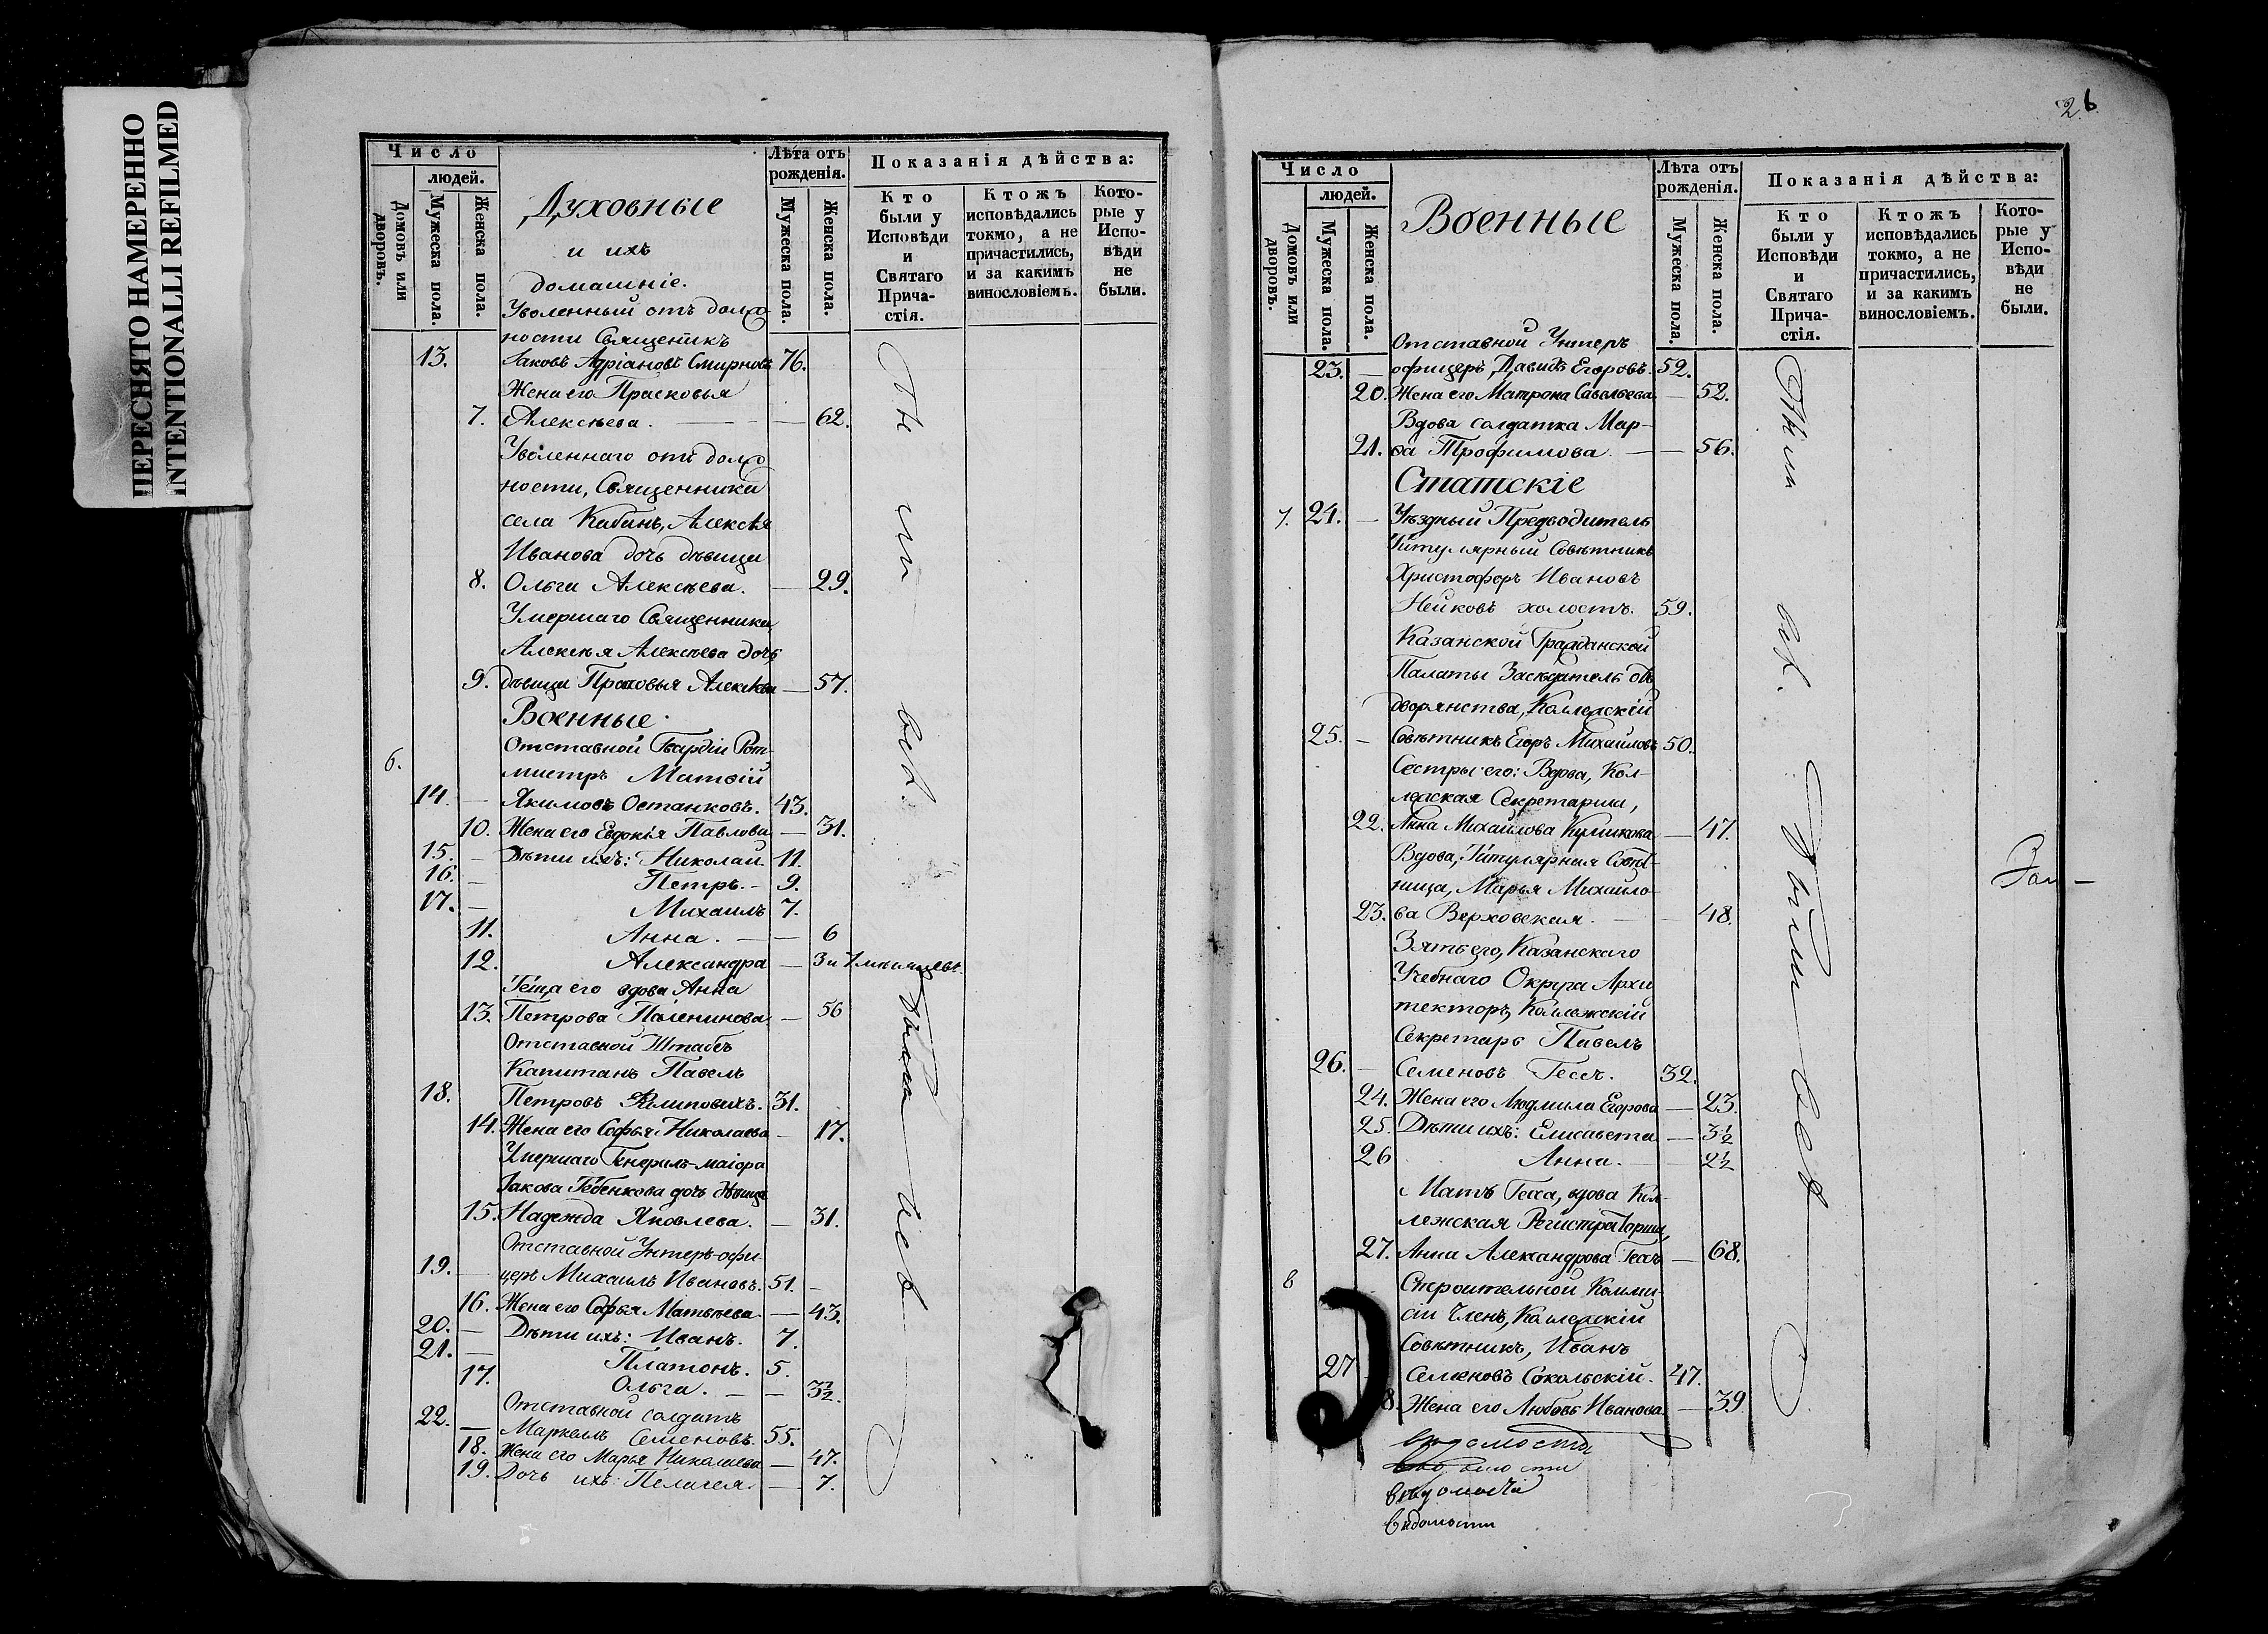 ПЕРЕСНЯТО НАМЕРЕННО
INTENTIONALLI REFILMED
Число
людей.
Домовъ или дворовъ.
Мужеска пола.
Женска пола.
Духовные
и ихъ
домашніе.
Лѣта отъ рожденія.
Мужеска пола.
Женска пола.
Показанія дѣйства:
Кто были у Исповѣди и Святаго Причастія.
Ктожъ исповѣдались токмо, а не причастились, и за какимъ винословіемъ.
Которые у Исповѣди не были.
Уволенный отъ долж
ности Священикъ
13. Іаковъ Адріановъ Смирновъ 76.
Жена его Прасковья
7. Алексѣева. — 62.
Уволеннаго отъ долж
ности, Священника
села Кабанъ, Алексѣя
Иванова дочь дѣвица
8. Ольга Алексѣева. — 29.
Умершаго Священника,
Алексѣя Алексѣева дочь,
9. дѣвица Алексѣева — 57.
Военные.
6. Отставной Гвардіи Рот-
мистръ Матѳій
14. — Якимовъ Останковъ. 43.
10. Жена его Евдокія Павлова — 31.
15. — Дѣти ихъ: Николай. 11.
16. — Петръ. — 9.
17. — Михаилъ 7.
11. Анна. — — 6
12. Александра — 3 и мѣсяцевъ.
Теща его вдова Анна
13. Петрова — 56
Отставной Штабсъ
Капитанъ Павелъ
18. Петровъ 31.
14. Жена его Софья Николаева — 17.
Умершаго Генералъ-маіора
Іакова Гебенкова дочь дѣвица
15. Надежда Яковлева. — 31.
Отставной Унтеръ-офи-
19. — церъ Михаилъ Ивановъ. 51. —
16. Жена его Софья Матвѣева — 43.
20. — Дѣти ихъ: Иванъ. 7.
21. — Платонъ. 5.
17. Ольга. — — 3½.
Отставной солдатъ
22. — Маркеллъ Семеновъ. 55.
18. Жена его Марья Николаева — 47.
19. Дочь ихъ: Пелагея. — 7.
были всѣ
26
Число
людей.
Домовъ или дворовъ.
Мужеска пола.
Женска пола.
Военные
Лѣта отъ рожденія.
Мужеска пола.
Женска пола.
Показанія дѣйства:
Кто были у Исповѣди и Святаго Причастія.
Ктожъ исповѣдались токмо, а не причастились, и за какимъ винословіемъ.
Которые у Исповѣди не были.
Отставной Унтеръ
23. — офицеръ Давидъ Егоровъ. 52.
20. Жена его Матрона Савельева — 52.
Вдова солдатка Мар-
21. ѳа Трофимова. — — 56.
Статскіе
7. 24. — Уѣздный Предводитель
Титулярный Совѣтникъ
Христофоръ Ивановъ
Нейковъ холостъ. 59.
Казанской Гражданской
Палаты Засѣдатель отъ
дворянства, Коллежскій
25. — Совѣтникъ Егоръ Михайловъ 50.
Сестры его: Вдова, Кол-
лежская Секретарша,
22. Анна Михайлова Куликова — 47.
Вдова, Титулярная Совѣт-
ница, Марья Михайло-
23. ва Верховская. — — 48.
Зять его, Казанскаго
Учебнаго Округа Архи
текторъ, Коллежскій
Секретарь Павелъ
26. — Семеновъ Гессъ. 32.
24. Жена его Людмила Егорова — 23.
25. Дѣти ихъ: Елисавета — 3½
26 Анна. — 2½
Мать Гесса, вдова Кол-
лежская Регистраторша,
27. Анна Александрова Гессъ — 68.
8 Строительной Комми-
сіи Членъ, Коллежскій
Совѣтникъ, Иванъ
27 Семеновъ Сокольскій. 47.
8. Жена его Любовь Иванова. — 39.
были всѣ
вѣдомости
вѣдомости